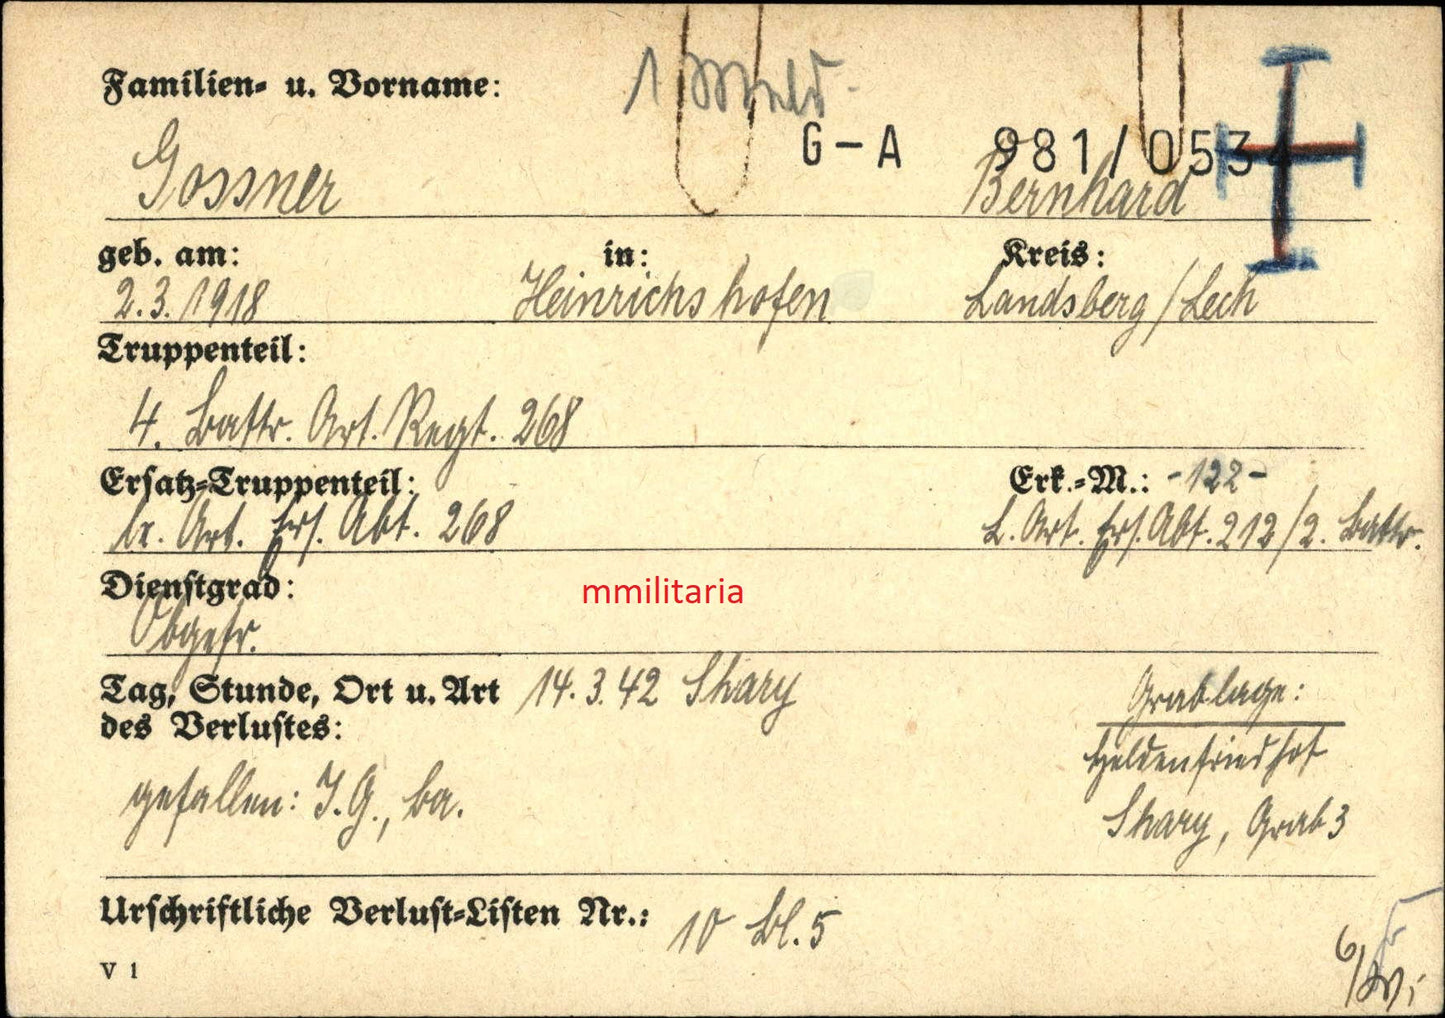 Familien- u. Vorname:
1 Meld.
G-A 981/0534
Gossner Bernhard
geb. am: in: Kreis:
2.3.1918 Heinrichshofen Landsberg/Lech
Truppenteil:
4. Battr. Art. Regt. 268
Ersatz-Truppenteil: Erk.-M.: -122-
lr. Art. Ers. Abt. 268 L. Art. Ers. Abt. 212/2. Battr.
Dienstgrad:
mmilitaria
Obgefr.
Tag, Stunde, Ort u. Art 14.3.42 Shary Grablage:
des Verlustes: Heldenfriedhof
gefallen: I.G., Shary, Grab 3
Urschriftliche Verlust-Listen Nr.: 10 Bl. 5
V 1